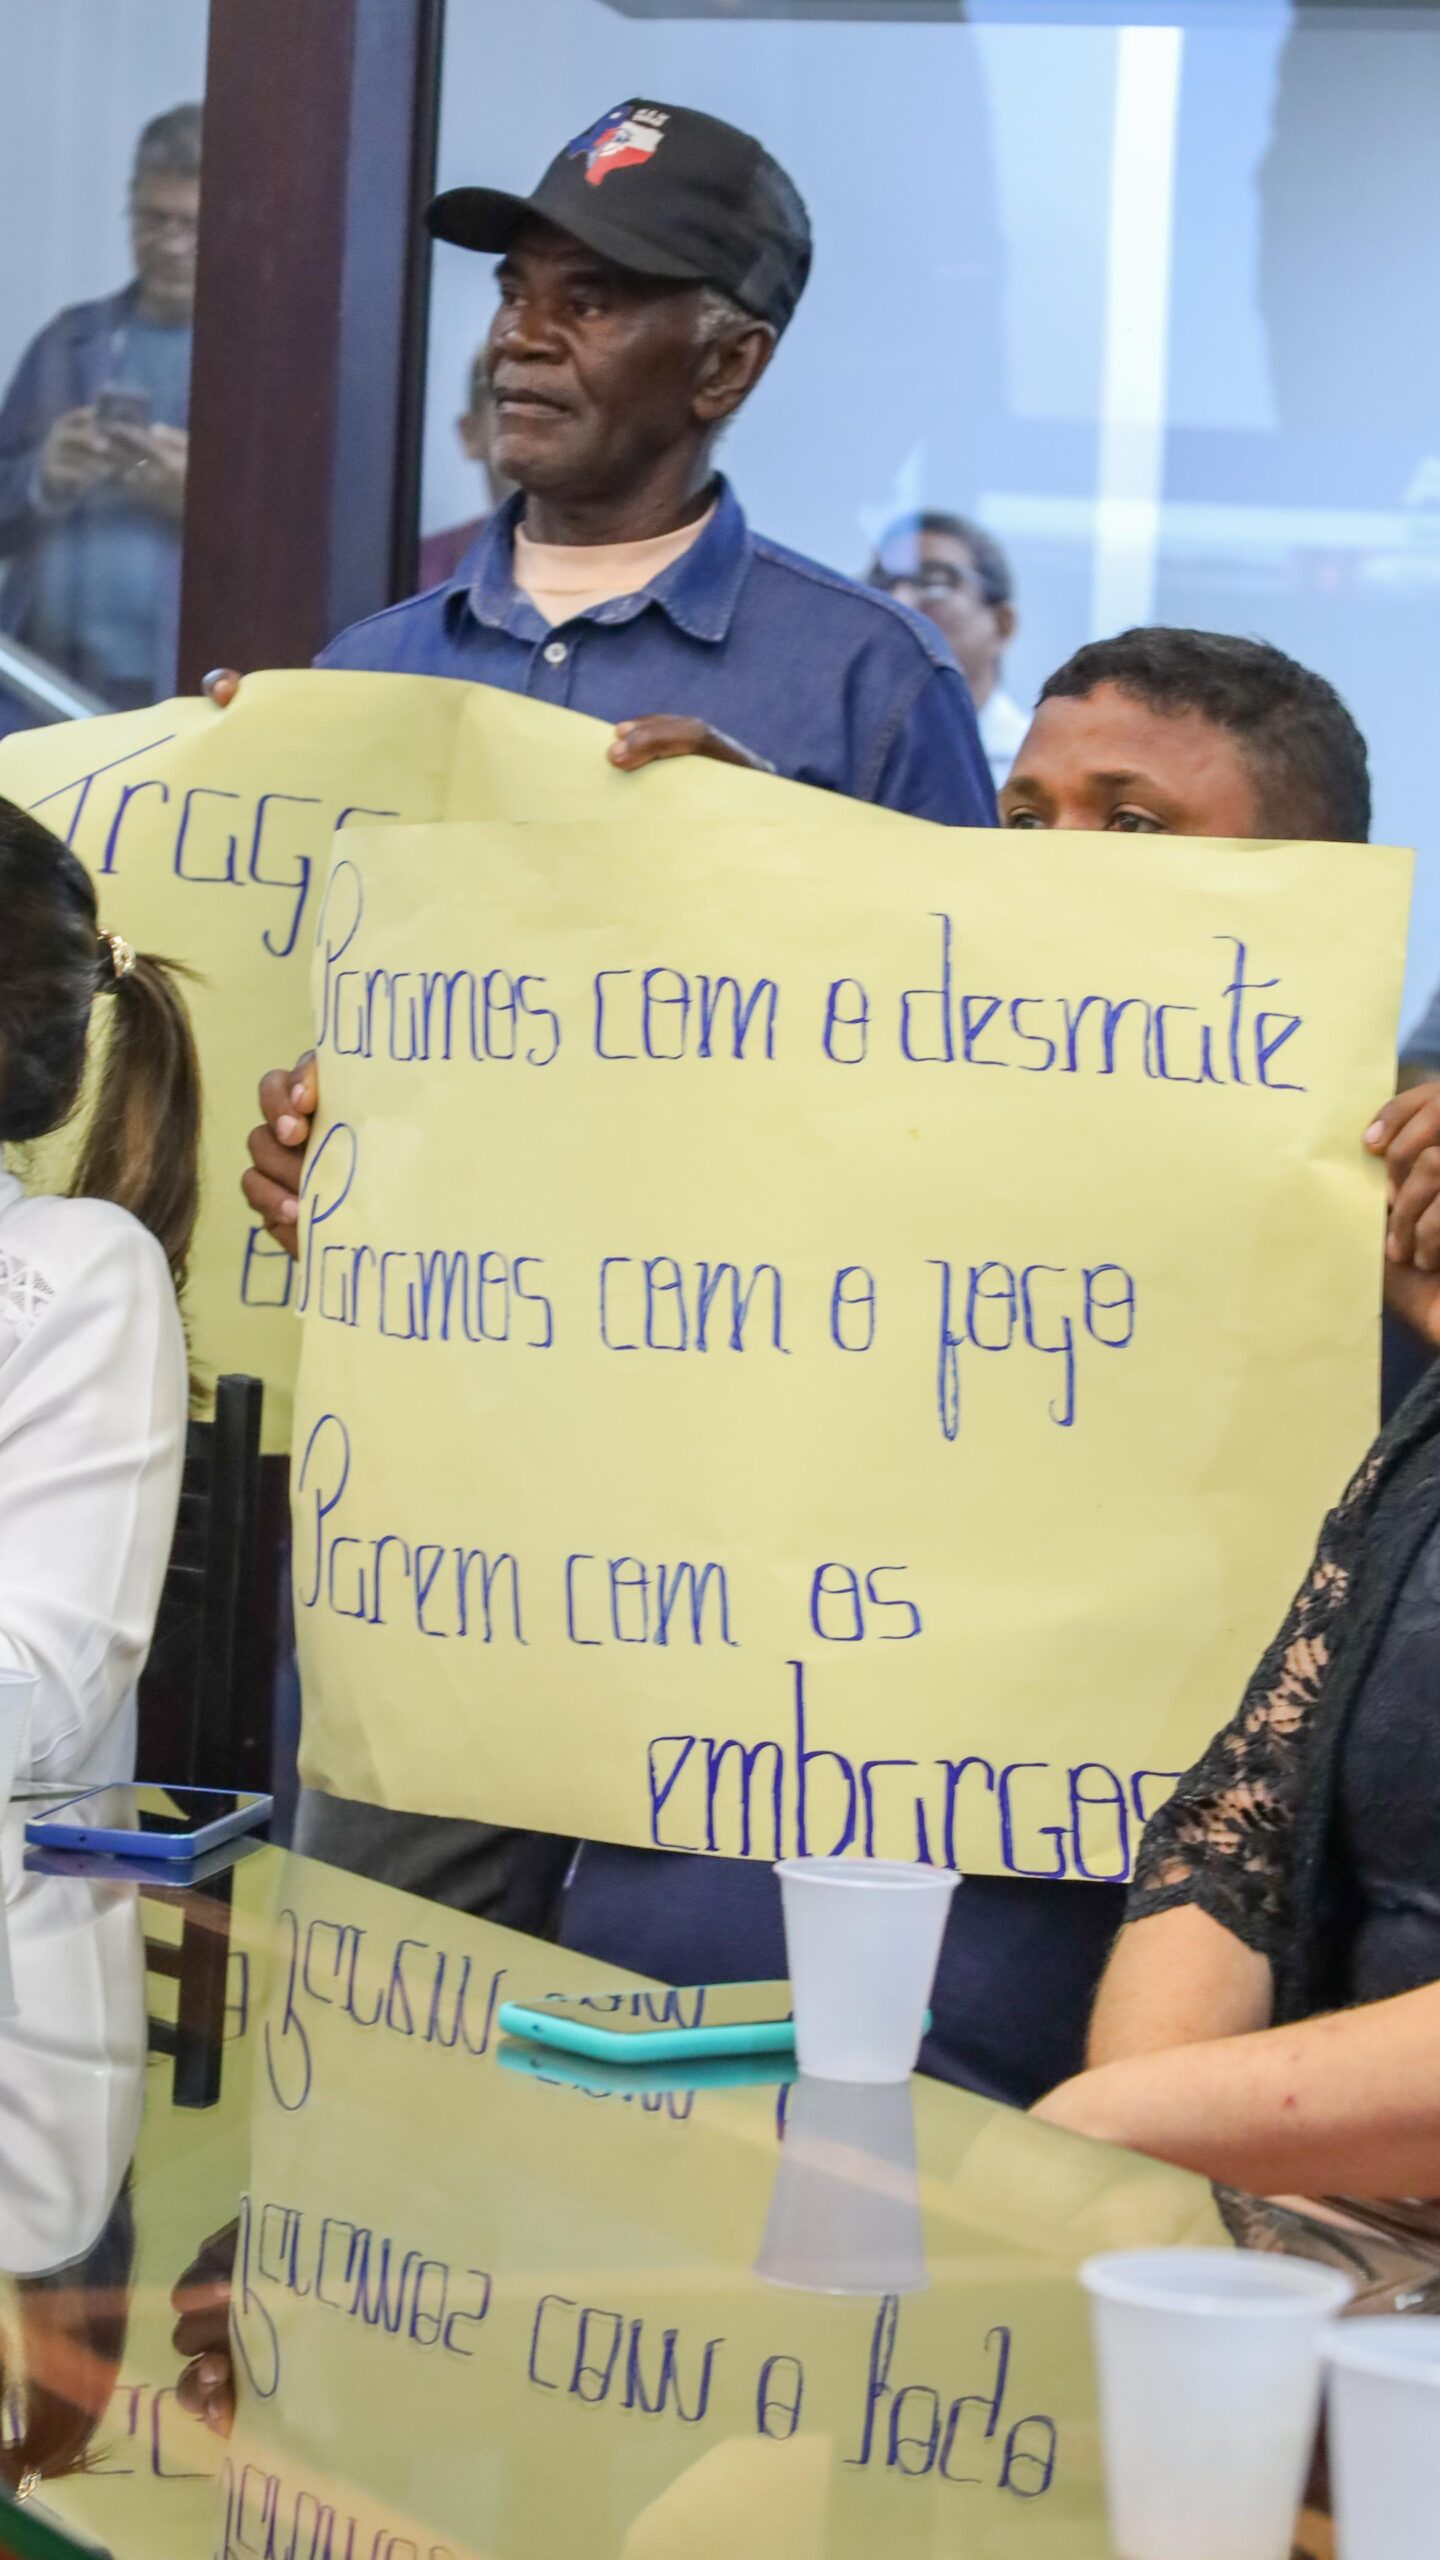 Paramos com o desmate
Paramos com o fogo
Parem com os
embargos